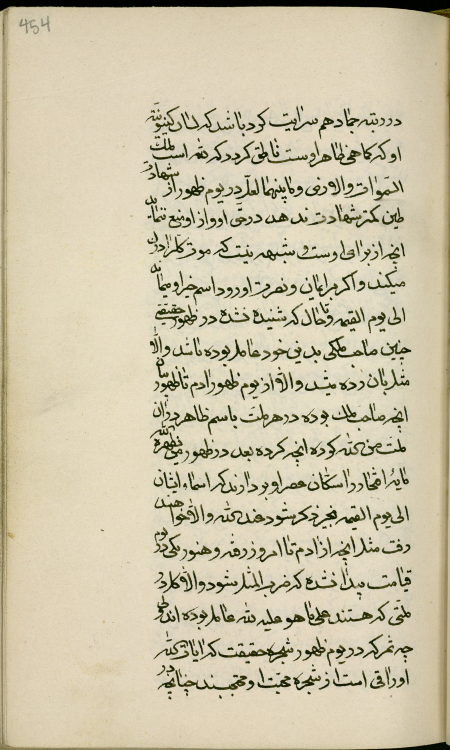 454
در رتبه جماد هم سرایت کرد باشد که لسان کینونیته
او که کاهی ظاهر اوست ناطق کردد که لله است ملک
السموات والارض وما بینهما لعل در یوم ظهور از شهادت
طین کمتر شهادت ندهد در حق او واز او منع ننماید
انچه از برای اوست و شبهه نیست که موت کل را درک
میکند واکر بر ایمان ونصرت اورود اسم خیر او میماند
الی یوم القیمه وتا حال که شنیده نشده در ظهور حقیقی
چنین صاحب ملکی بدین خود عامل بوده باشد والا
مثل بیان زده میشد والا از یوم ظهور ادم تا ظهور بیان
انچه صاحب ملک بوده در هر ملت باسم ظاهر در ان
ملت من الله کرده انچه کرده بعد در ظهور من یظهره الله
مایه افتخار را سکان عصر او بردارند که اسماء ایشان
الی یوم القیمه بخیر ذکر شود عند الله والا خواهند
رفت مثل انچه از ادم تا امروز رفته وهنوز یکی در یوم
قیامت پیدا نشده که ضرب المثل شود والا کل در
ملتی که هستند علی ما هو علیه لله عامل بوده اند
چه ثمر که در یوم ظهور شجره حقیقت که ایات الله
اوراق است از شجره محبت او محتجبند چنانچه در